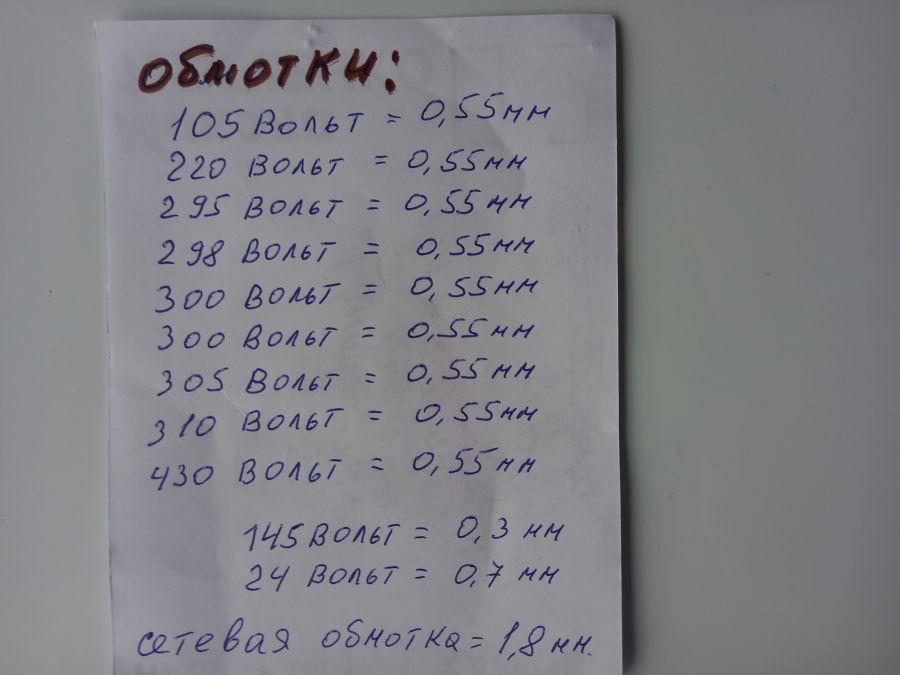 обмотки:
105 Вольт = 0,55мм
220 Вольт = 0,55мм
295 Вольт = 0,55мм
298 Вольт = 0,55мм
300 Вольт = 0,55мм
300 Вольт = 0,55мм
305 Вольт = 0,55мм
310 Вольт = 0,55мм
430 Вольт = 0,55мм
145 Вольт = 0,3 мм
24 Вольт = 0,7 мм
сетевая обмотка = 1,8 мм.